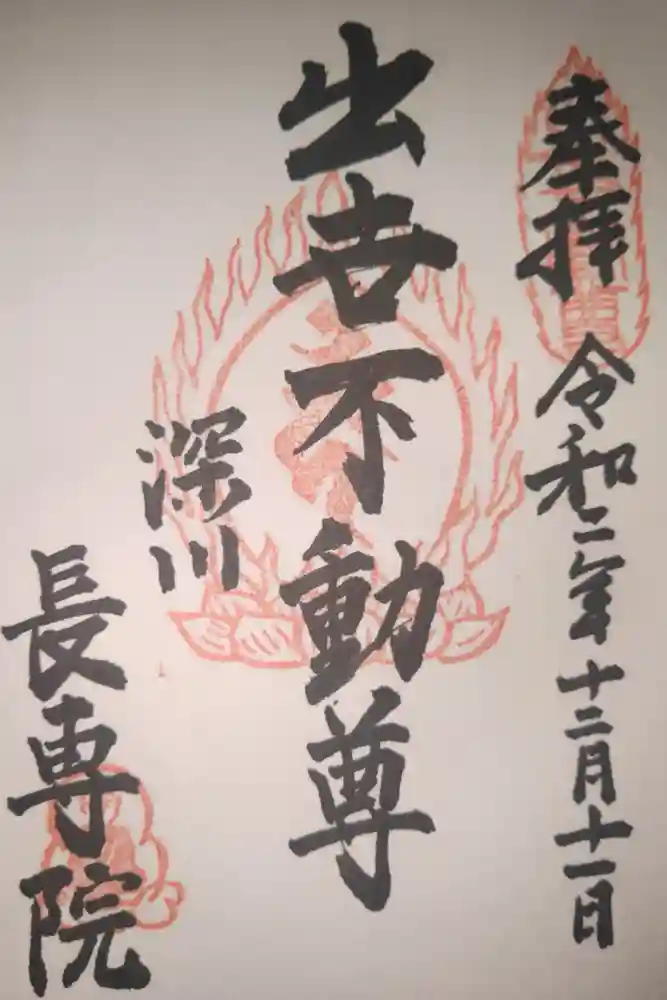 奉拝 令和二年十二月十一日
出世不動尊
深川
長専院